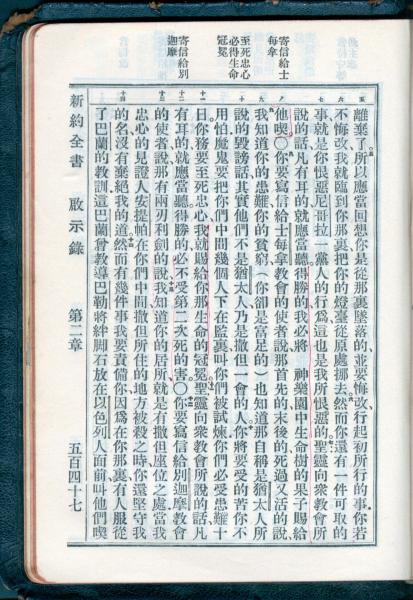 寄信給士
每拿
至死忠心
必得生命
冠冕
寄信給別
迦摩
五 六 七 八 九 十 十一 十二 十三 十四
離棄了所以應當回想你是從那裏墜落的、並要悔改、行起初所行的事、你若
不悔改、我就臨到你那裏、把你的燈臺從原處挪去然而你還有一件可取的
事、就是你恨惡尼哥拉一黨人的行爲、這也是我所恨惡的聖靈向衆教會所
說的話、凡有耳的、就應當聽得勝的、我必將　神樂園中生命樹的果子賜給
他喫〇你要寫信給士每拿教會的使者、說、那首先的、末後的、死過又活的說、
我知道你的患難、你的貧窮、（你卻是富足的）也知道那自稱是猶太人所
說的毀謗話、其實他們不是猶太人、乃是撒但一會的人你將要受的苦你不
用怕魔鬼要把你們中間幾個人下在監裏、叫你們被試煉、你們必受患難十
日你務要至死忠心、我就賜給你那生命的冠冕聖靈向衆教會所說的話、凡
有耳的、就應當聽得勝的、必不受第二次死的害〇你要寫信給別迦摩教會
的使者、說、那有兩刃利劍的說、我知道你的居所、就是有撒但座位之處當我
忠心的見證人安提帕在你們中間、撒但所住的地方被殺之時、你還堅守我
的名、沒有棄絕我的道然而有幾件事我要責備你、因爲在你那裏、有人服從
了巴蘭的教訓這巴蘭曾教導巴勒將絆脚石放在以色列人面前、叫他們喫
新約全書　啟示錄　第二章　五百四十七